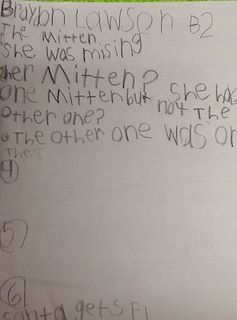 Braylon Lawson B2
The Mitten.
she was mising
her Mitten?
one Mitten but she has
not The
other one?
The other one was on
The
4
5
6
santa gets